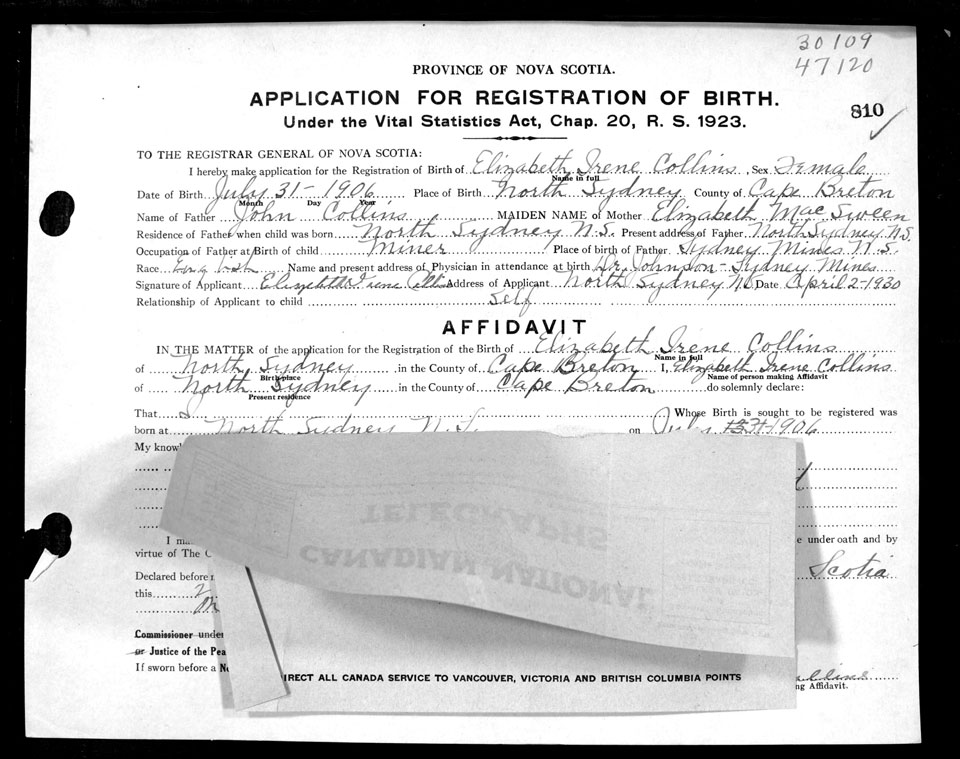 30109
47120
PROVINCE OF NOVA SCOTIA.
APPLICATION FOR REGISTRATION OF BIRTH.
810
Under the Vital Statistics Act, Chap. 20, R. S. 1923.
TO THE REGISTRAR GENERAL OF NOVA SCOTIA:
I hereby make application for the Registration of Birth of Elizabeth Irene Collins Sex Female
Name in full
Date of Birth July 31 - 1906 Place of Birth North Sydney County of Cape Breton
Month Day Year
Name of Father John Collins MAIDEN NAME of Mother Elizabeth Mac Sween
Residence of Father when child was born North Sydney N.S. Present address of Father North Sydney N.S.
Occupation of Father at Birth of child Miner Place of birth of Father Sydney Mines N.S.
Race Name and present address of Physician in attendance at birth Dr. Johnson - Sydney Mines
Signature of Applicant Elizabeth Irene Collins Address of Applicant North Sydney N.S. Date April 2-1930
Relationship of Applicant to child Self
AFFIDAVIT
IN THE MATTER of the application for the Registration of the Birth of Elizabeth Irene Collins
Name in full
of North Sydney in the County of Cape Breton I, Elizabeth Irene Collins
Birthplace Name of person making Affidavit
of North Sydney in the County of Cape Breton do solemnly declare:
Present residence
That I Whose Birth is sought to be registered was
born at North Sydney N.S. on July 31 1906
My know
I m e under oath and by
virtue of The C
Declared before Scotia
this 2
Commissioner under
or Justice of the Pea
If sworn before a N
ng Affidavit.
TELEGRAPHS
CANADIAN NATIONAL
IRECT ALL CANADA SERVICE TO VANCOUVER, VICTORIA AND BRITISH COLUMBIA POINTS